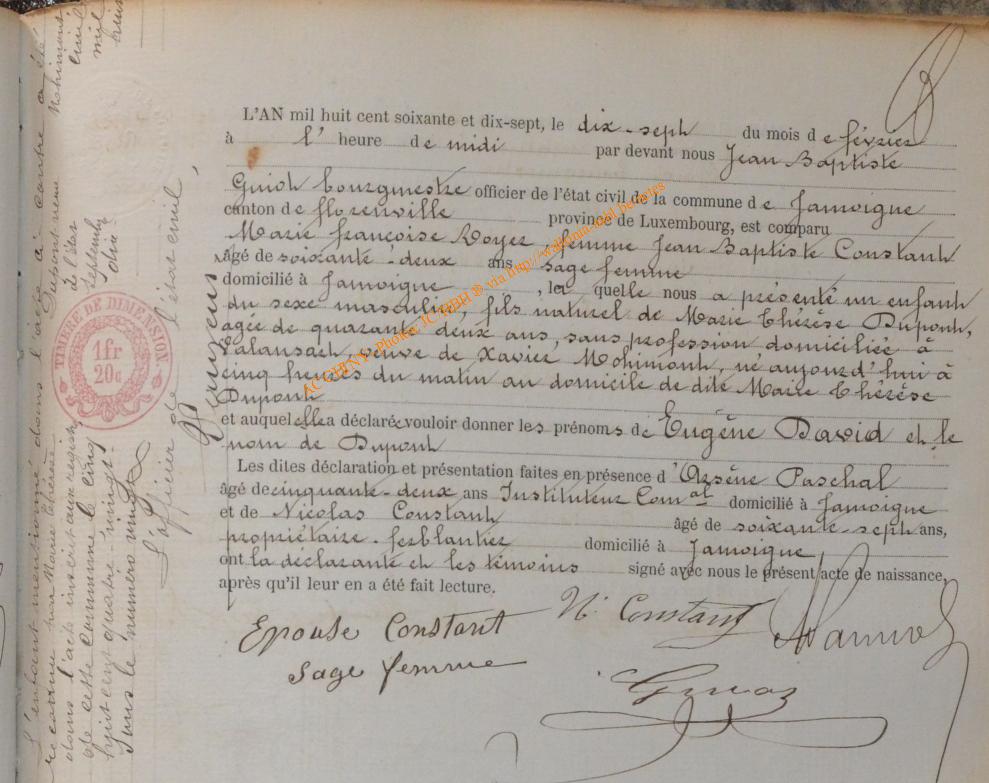 L'AN mil huit cent soixante et dix-sept, le dix-sept du mois de février
à l' heure de midi par devant nous Jean Baptiste
Guiot bourgmestre officier de l'état civil de la commune de Jamoigne
canton de florenville province de Luxembourg, est comparu
Marie françoise Royer, femme Jean Baptiste Constant
âgé de soixante-deux ans sage femme
domicilié à Jamoigne, la quelle nous a présenté un enfant
du sexe masculin, fils naturel de Marie Thérèse Dupont,
agée de quarante deux ans, sans profession domiciliée à
Valansart, veuve de Xavier Mohimont, né aujourd'hui à
cinq heures du matin au domicile de dite Marie Thérèse
Dupont
et auquel elle a déclaré vouloir donner les prénoms de Eugène David et le
nom de Dupont
Les dites déclaration et présentation faites en présence d'Arsène Paschal
âgé de cinquante-deux ans Instituteur Com.al domicilié à Jamoigne
et de Nicolas Constant âgé de soixante-sept ans,
propriétaire-ferblantier domicilié à Jamoigne,
ont la déclarante et les témoins signé avec nous le présent acte de naissance,
après qu'il leur en a été fait lecture.
Epouse Constant
Sage femme
N. Constant
L'enfant mentionné dans l'acte ci-contre a été
reconnu par Marie Thérèse Dupont veuve Mohimont
dans l'acte inscrit aux registres de l'état civil
de cette commune le cinq septembre mil
huit cent quatre-vingt-
sous le numéro vingt
L'officier de l'état civil,
TIMBRE DE DIMENSION
1fr
20c